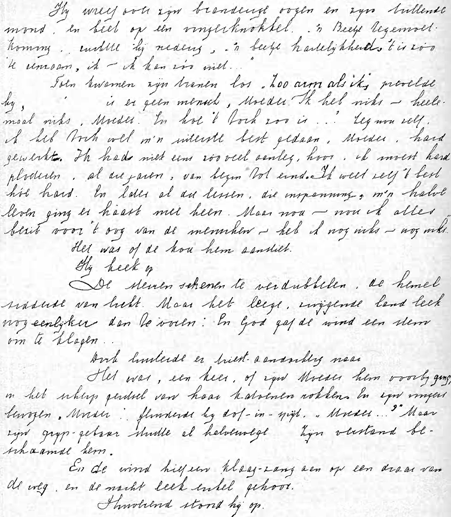 Hij wreef over zijn brandende oogen en zijn trillende
mond en beet op een vingerknokkel. 'n Beetje tegemoet-
koming, snikte hij nederig, 'n beetje hartelijkheid, 't is zoo
'k eenzaam, ik – ik kan zoo niet..."
Toen kwamen zijn tranen los. „Zoo arm als ik, prevelde
hij, is er geen mensch, Moeder. Ik heb niks – heele-
maal niks, Moeder. En hoe 't toch zoo is...? Zeg nou zelf.
ik heb toch wel m'n uiterste best gedaan, Moeder, hard
gewerkt. Ik had niet eens zooveel aanleg, hoor, ik moest hard
ploeteren, al die jaren, van begin tot eind. U weet zelf 't best
hoe hard. En later al die lessen, die inspanning, m'n halve
leven ging er haast mee heen. Maar nou – nou ik alles
voor 't oog van de menschen – heb ik nog niks – nog niks.
Het was of de kou hem aandeed.
Hij keek op
De sterren schenen te verdubbelen, de hemel
van licht. Maar het leege, zwijgende land leek
nog eenlijker dan te voren. En God gaf de wind een stem
om te klagen...
luisterde er naar
Het was, een keer, of zijn Moeder hem voorbij ging,
in het van haar rokken. En zijn vingers
bewogen. „Moeder", fluisterde hij dof-in-zijt. „Moeder...?" Maar
zijn grijp-gebaar halverwege. Zijn verstand be-
schaamde hem.
En de wind hief een klaag-zang aan op een draai van
de weg, en de nacht leek enkel gehoor.
stond hij op.